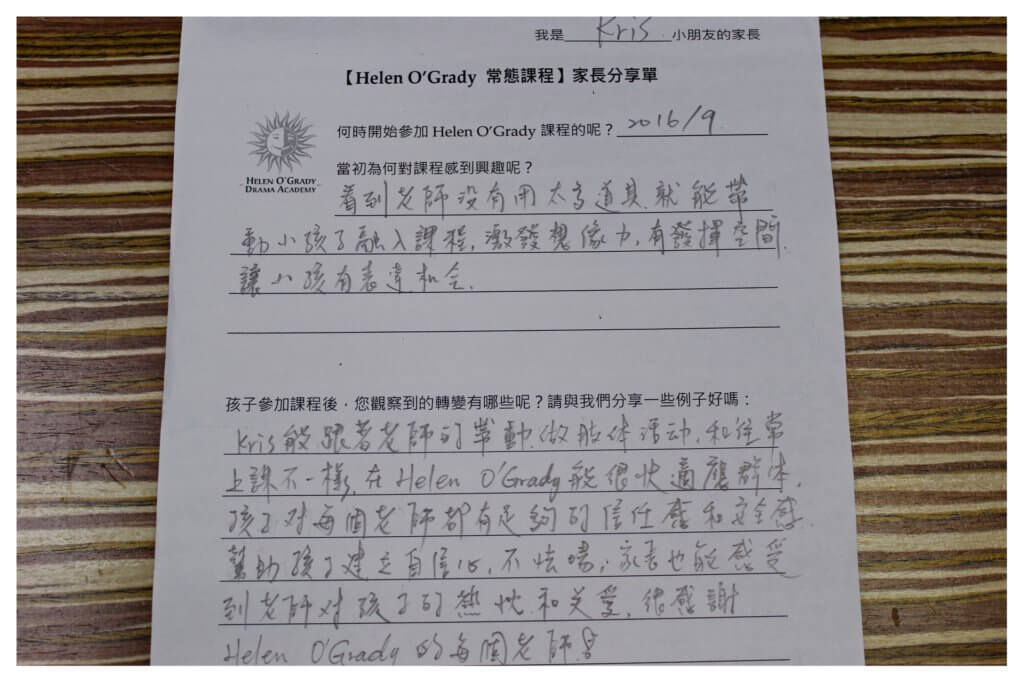 我是 Kris 小朋友的家長
【Helen O'Grady 常態課程】家長分享單
何時開始參加 Helen O'Grady 課程的呢？2016/9
當初為何對課程感到興趣呢？
HELEN O'GRADY
DRAMA ACADEMY
看到老師沒有用太多道具就能帶
動小孩子融入課程，激發想像力，有發揮空間，
讓小孩有表達机会。
孩子參加課程後，您觀察到的轉變有哪些呢？請與我們分享一些例子好嗎：
Kris能跟著老師的帶動做肢体活动，和往常
上課不一樣，在 Helen O'Grady 能很快適應群体，
孩子对每個老師都有足夠的信任感和安全感，
幫助孩子建立自信心，不怯場，家長也能感受
到老師对孩子的熱忱和关愛，很感謝
Helen O'Grady 的每個老師！